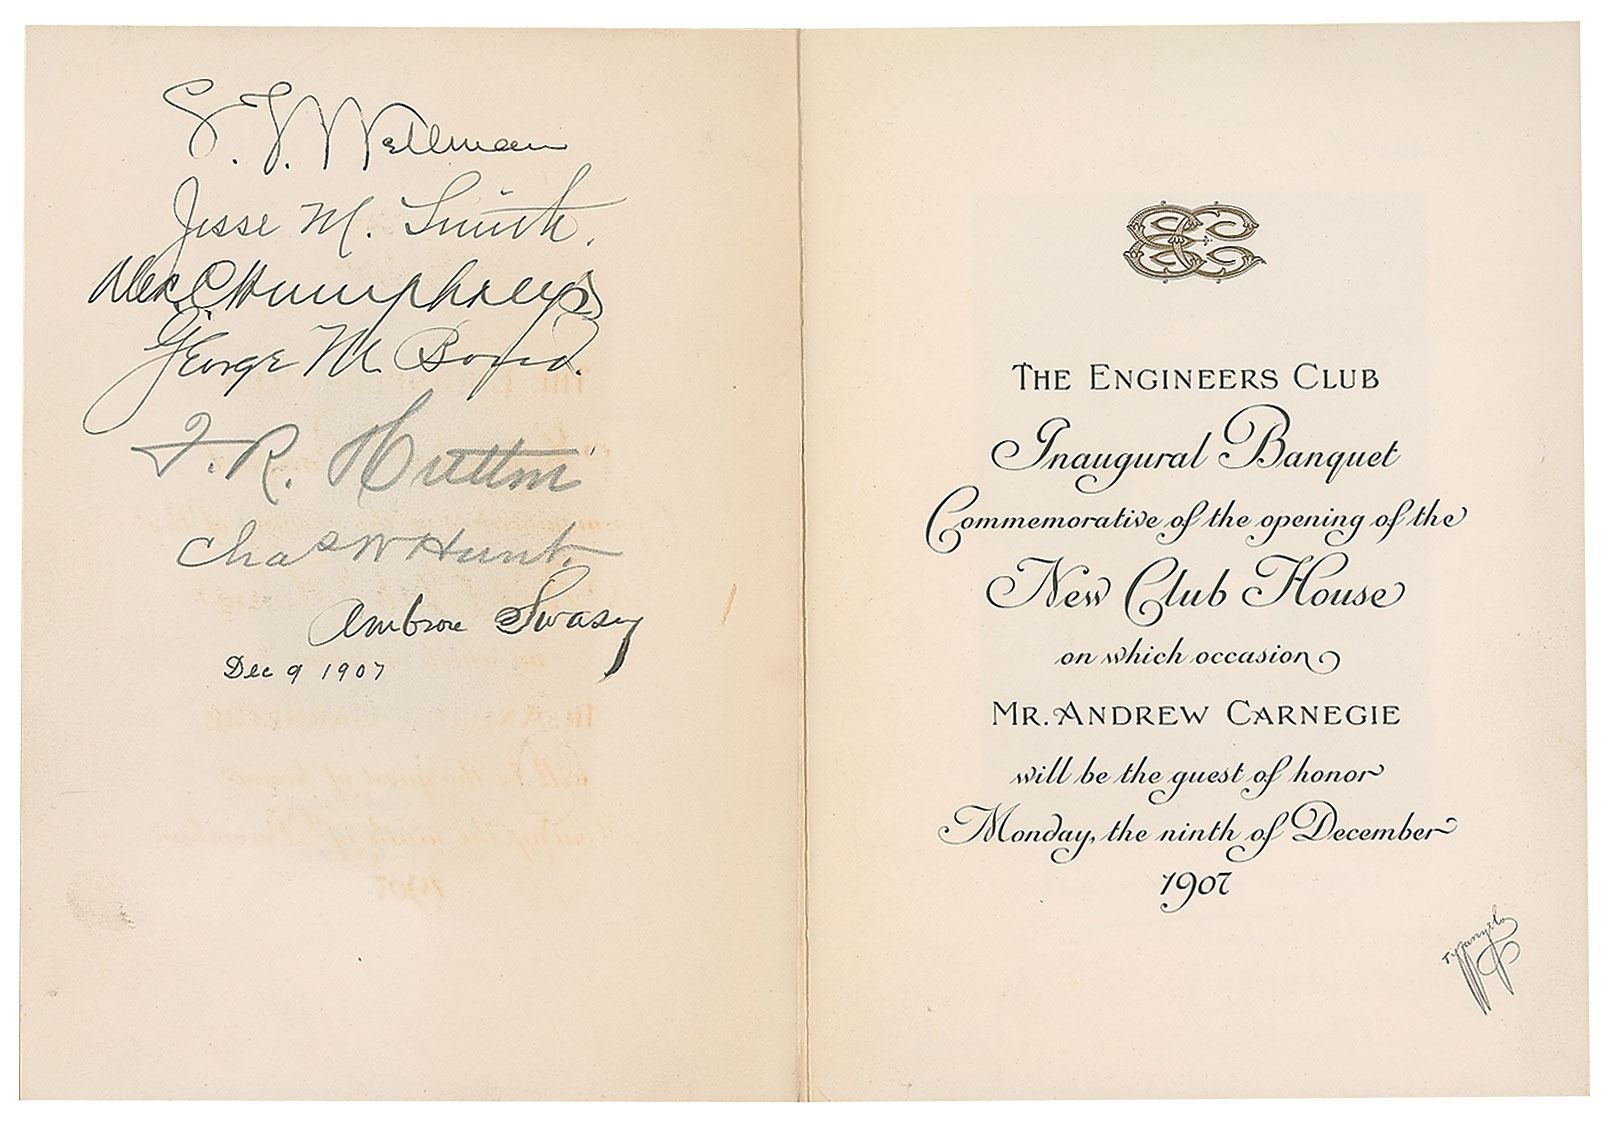 S. T. Wellman
Jesse M. Smith.
Alex. C. Humphreys
George M. Bond.
F. R. Hutton
Chas W Hunt.
Ambrose Swasey
Dec 9 1907
THE ENGINEERS CLUB
Inaugural Banquet
Commemorative of the opening of the
New Club House
on which occasion
MR. ANDREW CARNEGIE
will be the guest of honor
Monday, the ninth of December
1907
Tiffany & Co